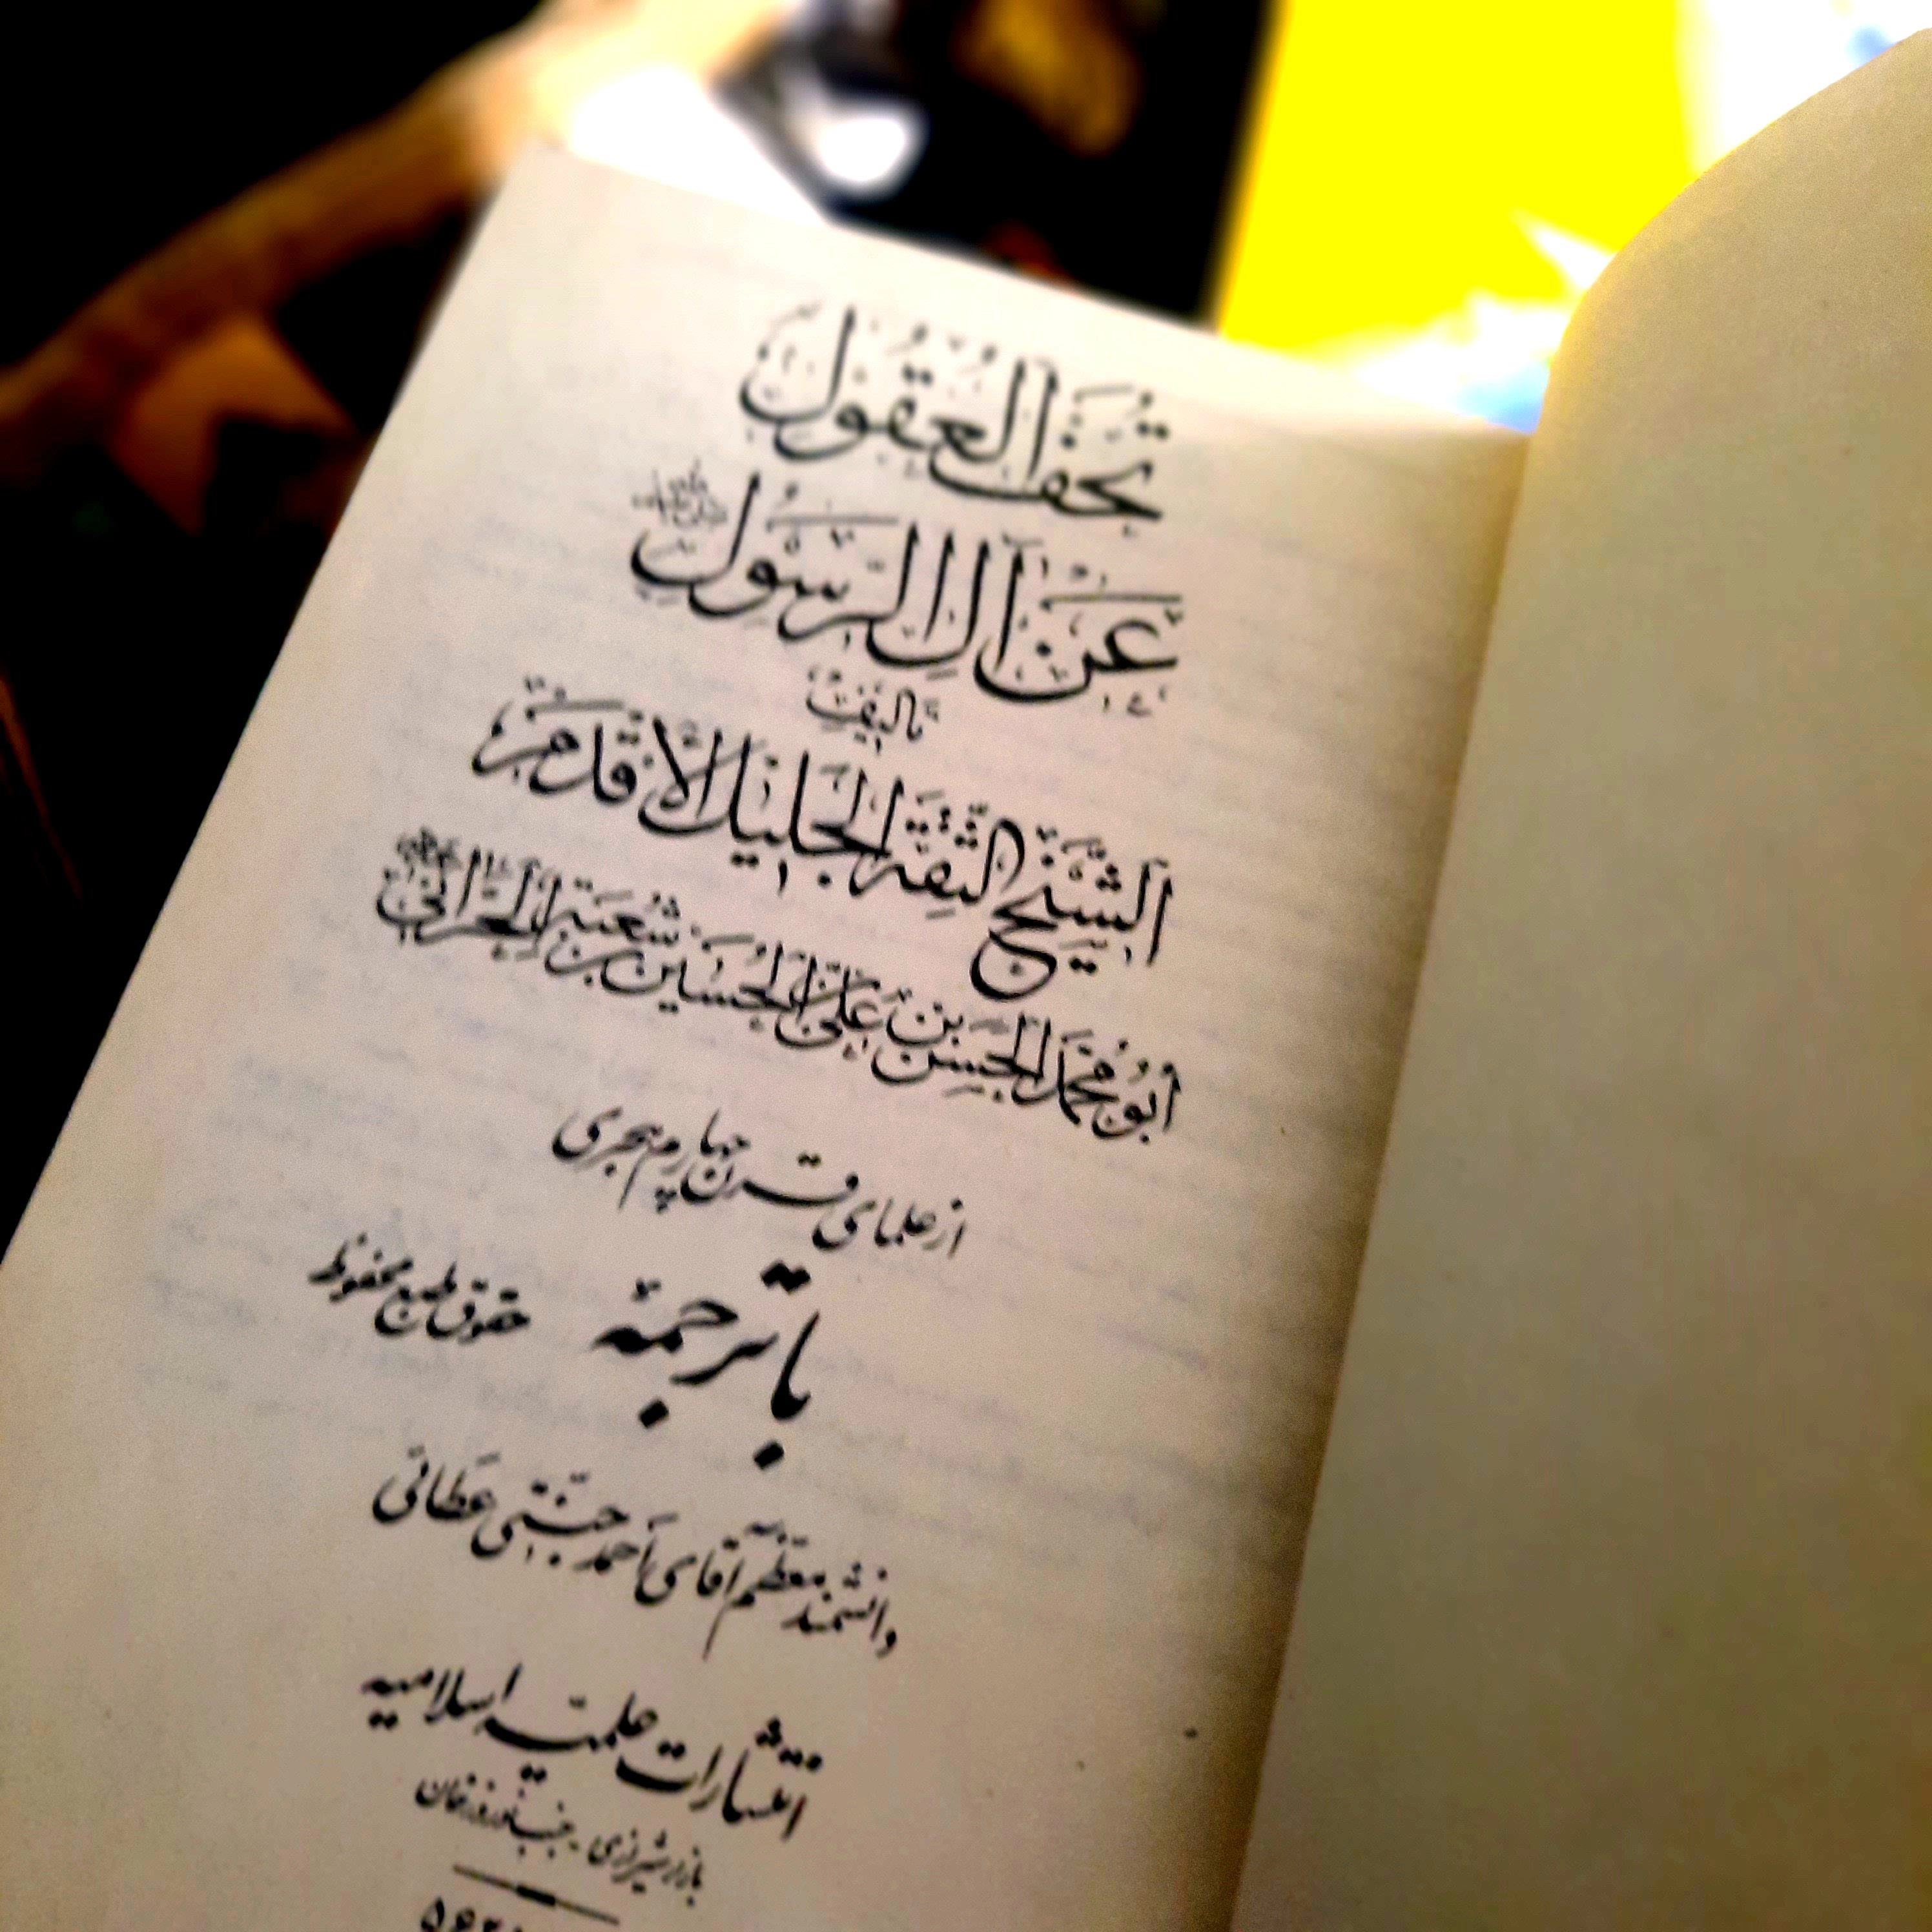 تُحَفُ الْعُقُولِ
عَنْ آلِ الرَّسُولِ
تألیف
اَلشَّيْخُ الثِّقَةُ الْجَلِيلُ الْأَقْدَمُ
أَبُو مُحَمَّدٍ الْحَسَنُ بْنُ عَلِيِّ بْنِ الْحُسَيْنِ بْنِ شُعْبَةَ الْحَرَّانِي
از علمای قرن چهارم هجری
با ترجمهٔ حقوق طبع محفوظ
دانشمند معظم آقای احمد جنتی عطائی
انتشارات علمیه اسلامیه
بازار شیرازی - جنب نوروزخان